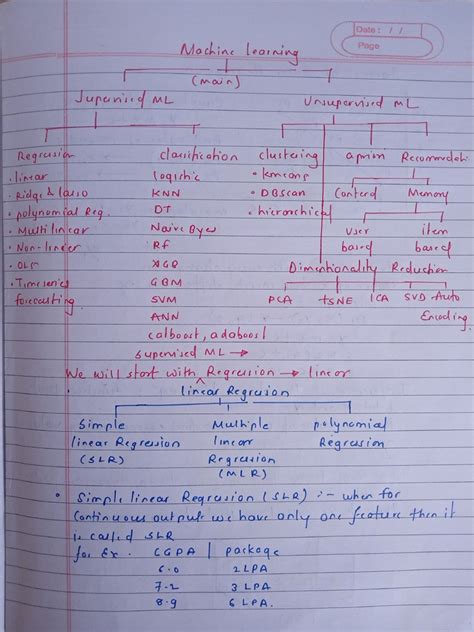 Date: / /
Page
Machine learning
(main)
Supervised ML Unsupervised ML
Regression classification clustering apriori Recommendati
• linear logistic • kmeans
• Ridge & lasso KNN • DBscan Contend Memory
• polynomial Reg. DT • hierarchical
• Multi linear Naive Byes user item
• Non-linear Rf based based
• OLS XGB Dimentionality Reduction
• Timeseries GBM
forecasting SVM PCA tSNE ICA SVD Auto
ANN Encoding
catboost, adaboost
Supervised ML →
We will start with ^ Regression → linear
linear Regression
Simple Multiple polynomial
linear Regression linear Regression
(SLR) Regression
(MLR)
• Simple linear Regression (SLR) :- when for
Continuous output we have only one feature then it
is called SLR
for Ex. CGPA | package
6.0 2 LPA
7.2 3 LPA
8.9 6 LPA.